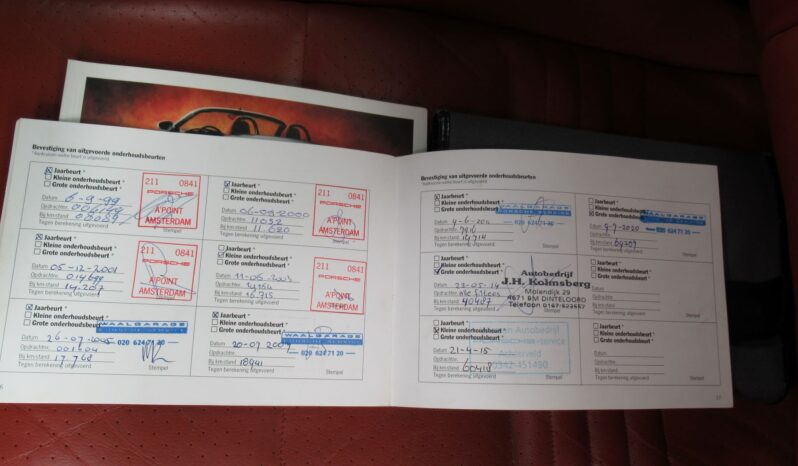 Bevestiging van uitgevoerde onderhoudsbeurten
*Aankruisen welke beurt is uitgevoerd
Jaarbeurt *
Kleine onderhoudsbeurt *
Grote onderhoudsbeurt *
Datum 6-9-99
Opdrachtnr.
Bij km-stand
Tegen berekening uitgevoerd
211 0841
PORSCHE
A'POINT
AMSTERDAM
Stempel
Jaarbeurt *
Kleine onderhoudsbeurt *
Grote onderhoudsbeurt *
Datum 06-09-2000
Opdrachtnr. 11052
Bij km-stand 11.620
Tegen berekening uitgevoerd
211 0841
PORSCHE
A'POINT
AMSTERDAM
Stempel
Jaarbeurt *
Kleine onderhoudsbeurt *
Grote onderhoudsbeurt *
Datum 05-12-2001
Opdrachtnr. 014699
Bij km-stand 14.207
Tegen berekening uitgevoerd
211 0841
PORSCHE
A'POINT
AMSTERDAM
Stempel
Jaarbeurt *
Kleine onderhoudsbeurt *
Grote onderhoudsbeurt *
Datum
Opdrachtnr.
Bij km-stand 16.715
Tegen berekening uitgevoerd
211 0841
PORSCHE
A'POINT
AMSTERDAM
Stempel
Jaarbeurt *
Kleine onderhoudsbeurt *
Grote onderhoudsbeurt *
Datum 26-07-2005
Opdrachtnr. 001604
Bij km-stand 17.768
Tegen berekening uitgevoerd
WAALGARAGE
020 624 71 20
Stempel
Jaarbeurt *
Kleine onderhoudsbeurt *
Grote onderhoudsbeurt *
Datum 20-07-2009
Opdrachtnr.
Bij km-stand 18941
Tegen berekening uitgevoerd
WAALGARAGE
020 624 71 20
Stempel
Bevestiging van uitgevoerde onderhoudsbeurten
*Aankruisen welke beurt is uitgevoerd
Jaarbeurt *
Kleine onderhoudsbeurt *
Grote onderhoudsbeurt *
Datum
Opdrachtnr.
Bij km-stand
Tegen berekening uitgevoerd
WAALGARAGE
PORSCHE SERVICE
020 624 71 20
Stempel
Jaarbeurt *
Kleine onderhoudsbeurt *
Grote onderhoudsbeurt *
Datum 9-7-2020
Opdrachtnr.
Bij km-stand
Tegen berekening uitgevoerd
WAALGARAGE
624 71 20
Stempel
Jaarbeurt *
Kleine onderhoudsbeurt *
Grote onderhoudsbeurt *
Datum 22-05-14
Opdrachtnr.
Bij km-stand 40487
Tegen berekening uitgevoerd
Autobedrijf
J.H. Rolmsberg
Molendijk 29
4671 BM DINTELOORD
Telefoon 0167-523557
Jaarbeurt *
Kleine onderhoudsbeurt *
Grote onderhoudsbeurt *
Datum
Opdrachtnr.
Bij km-stand
Tegen berekening uitgevoerd
Stempel
Jaarbeurt *
Kleine onderhoudsbeurt *
Grote onderhoudsbeurt *
Datum 21-4-15
Opdrachtnr.
Bij km-stand 60418
Tegen berekening uitgevoerd
Autobedrijf
0342-451490
Stempel
Jaarbeurt *
Kleine onderhoudsbeurt *
Grote onderhoudsbeurt *
Datum
Opdrachtnr.
Bij km-stand
Tegen berekening uitgevoerd
Stempel